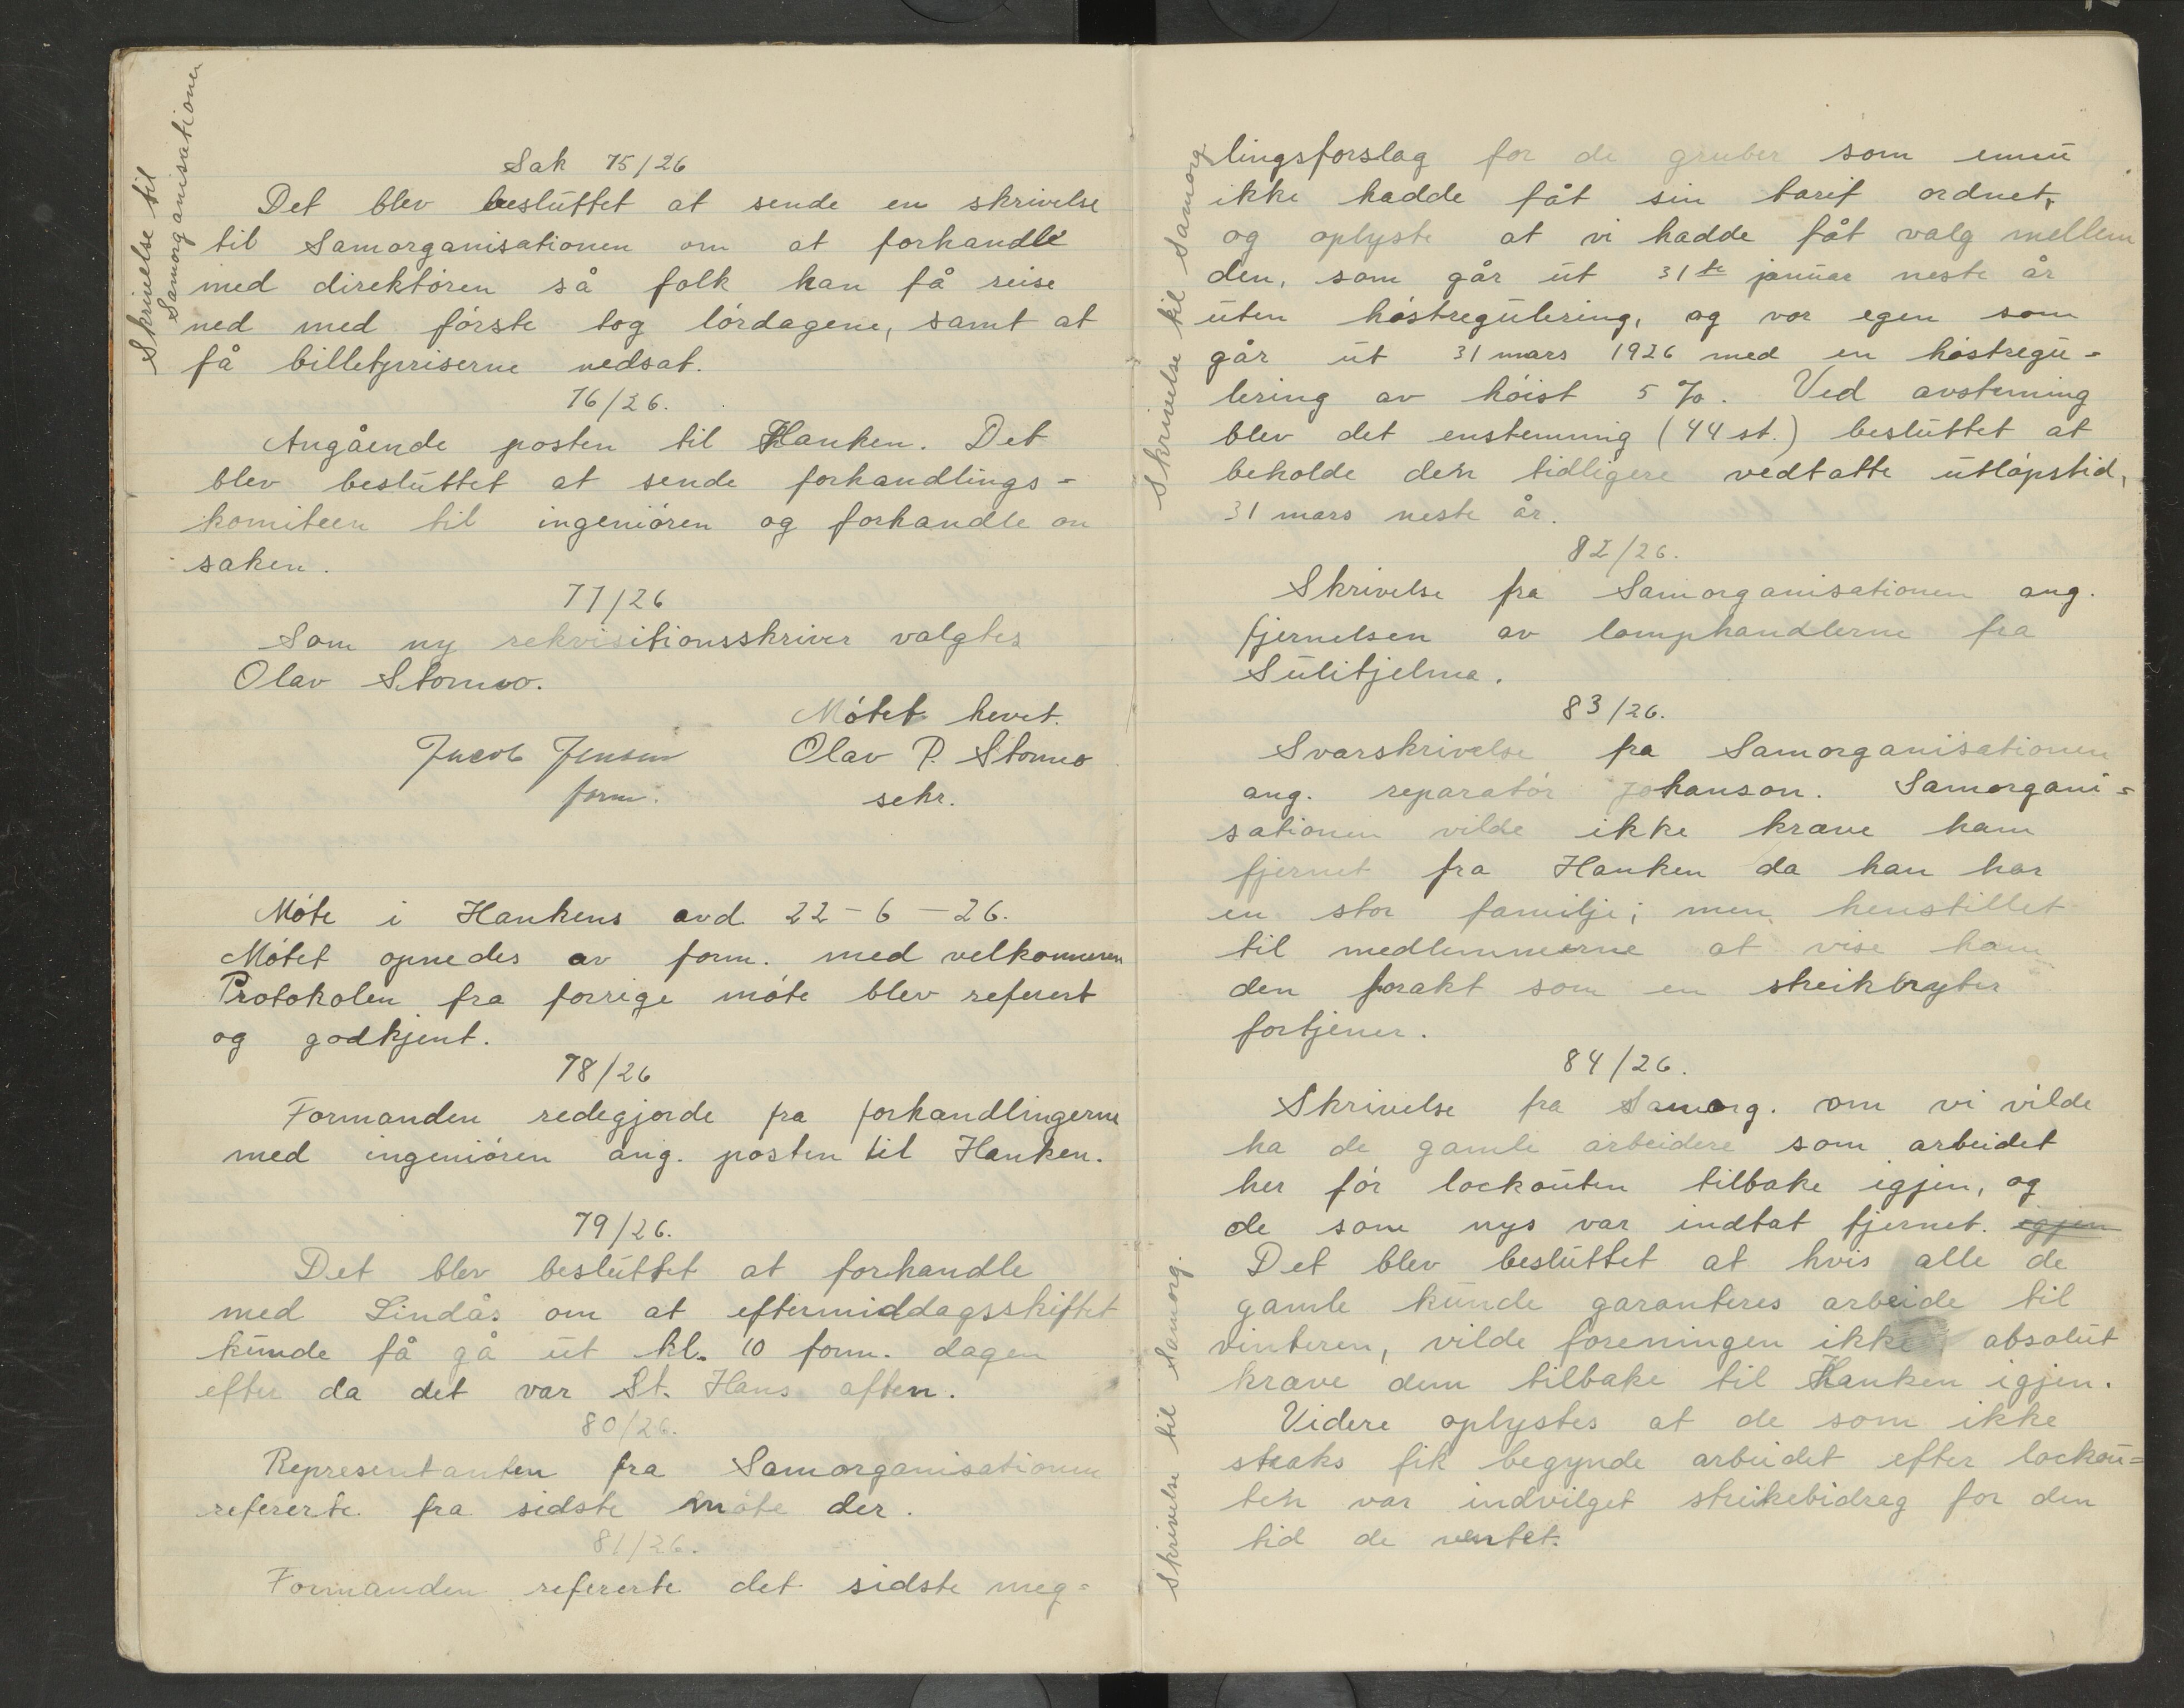 Skrivelse til
Samorganisationen
Sak 75/26
Det blev besluttet at sende en skrivelse
til Samorganisationen om at forhandle
med direktören så folk kan få reise
ned med förste tog lördagene, samt at
få billetpriserne nedsat.
76/26.
Angående posten til Hanken. Det
blev besluttet at sende forhandlings=
komiteen til ingeniören og forhandle om
saken.
77/26
Som ny rekvisitionsskriver valgtes
Olav Stomvo.
Mötet hevet.
Jacob Jensen Olav P. Stomvo
form. sekr.
Möte i Hankens avd 22-6-26.
Mötet opnedes av form. med velkommen
Protokolen fra forrige möte blev referert
og godkjent.
78/26
Formanden redegjorde fra forhandlingerne
med ingeniören ang. posten til Hanken.
79/26.
Det blev besluttet at forhandle
med Lindås om at eftermiddagsskiftet
kunde få gå ut kl. 10 form. dagen
efter da det var St. Hans aften.
80/26.
Representanten fra Samorganisationen
refererte fra sidste möte der.
81/26.
Formanden refererte det sidste meg=
Skrivelse til Samorg
lingsforslag for de gruber som ennu
ikke hadde fåt sin tarif ordnet,
og oplyste at vi hadde fåt valg mellem
den, som går ut 31te januar neste år
uten höstregulering, og vor egen som
går ut 31 mars 1926 med en höstregu=
lering av höist 5 %. Ved avstemning
blev det enstemmig (44 st.) besluttet at
beholde den tidligere vedtatte utlöpstid,
31 mars neste år.
82/26.
Skrivelse fra Samorganisationen ang.
fjernelsen av lomphandlerne fra
Sulitjelma.
83/26.
Svarskrivelse fra Samorganisationen
ang. reparatör Johanson. Samorgani=
sationen vilde ikke kræve ham
fjernet fra Hanken da han har
en stor familje; men henstillet
til medlemmerne at vise ham
den forakt som en streikbryter
fortjener.
84/26.
Skrivelse til Samorg.
Skrivelse fra Samorg. om vi vilde
ha de gamle arbeidere som arbeidet
her för lockouten tilbake igjen, og
de som nys var indtat fjernet. igjen
Det blev besluttet at hvis alle de
gamle kunde garanteres arbeide til
vinteren, vilde foreningen ikke absolut
kræve dem tilbake til Hanken igjen.
Videre oplystes at de som ikke
straks fik begynde arbeidet efter lockou=
ten var indvilget streikebidrag for den
tid de ventet.